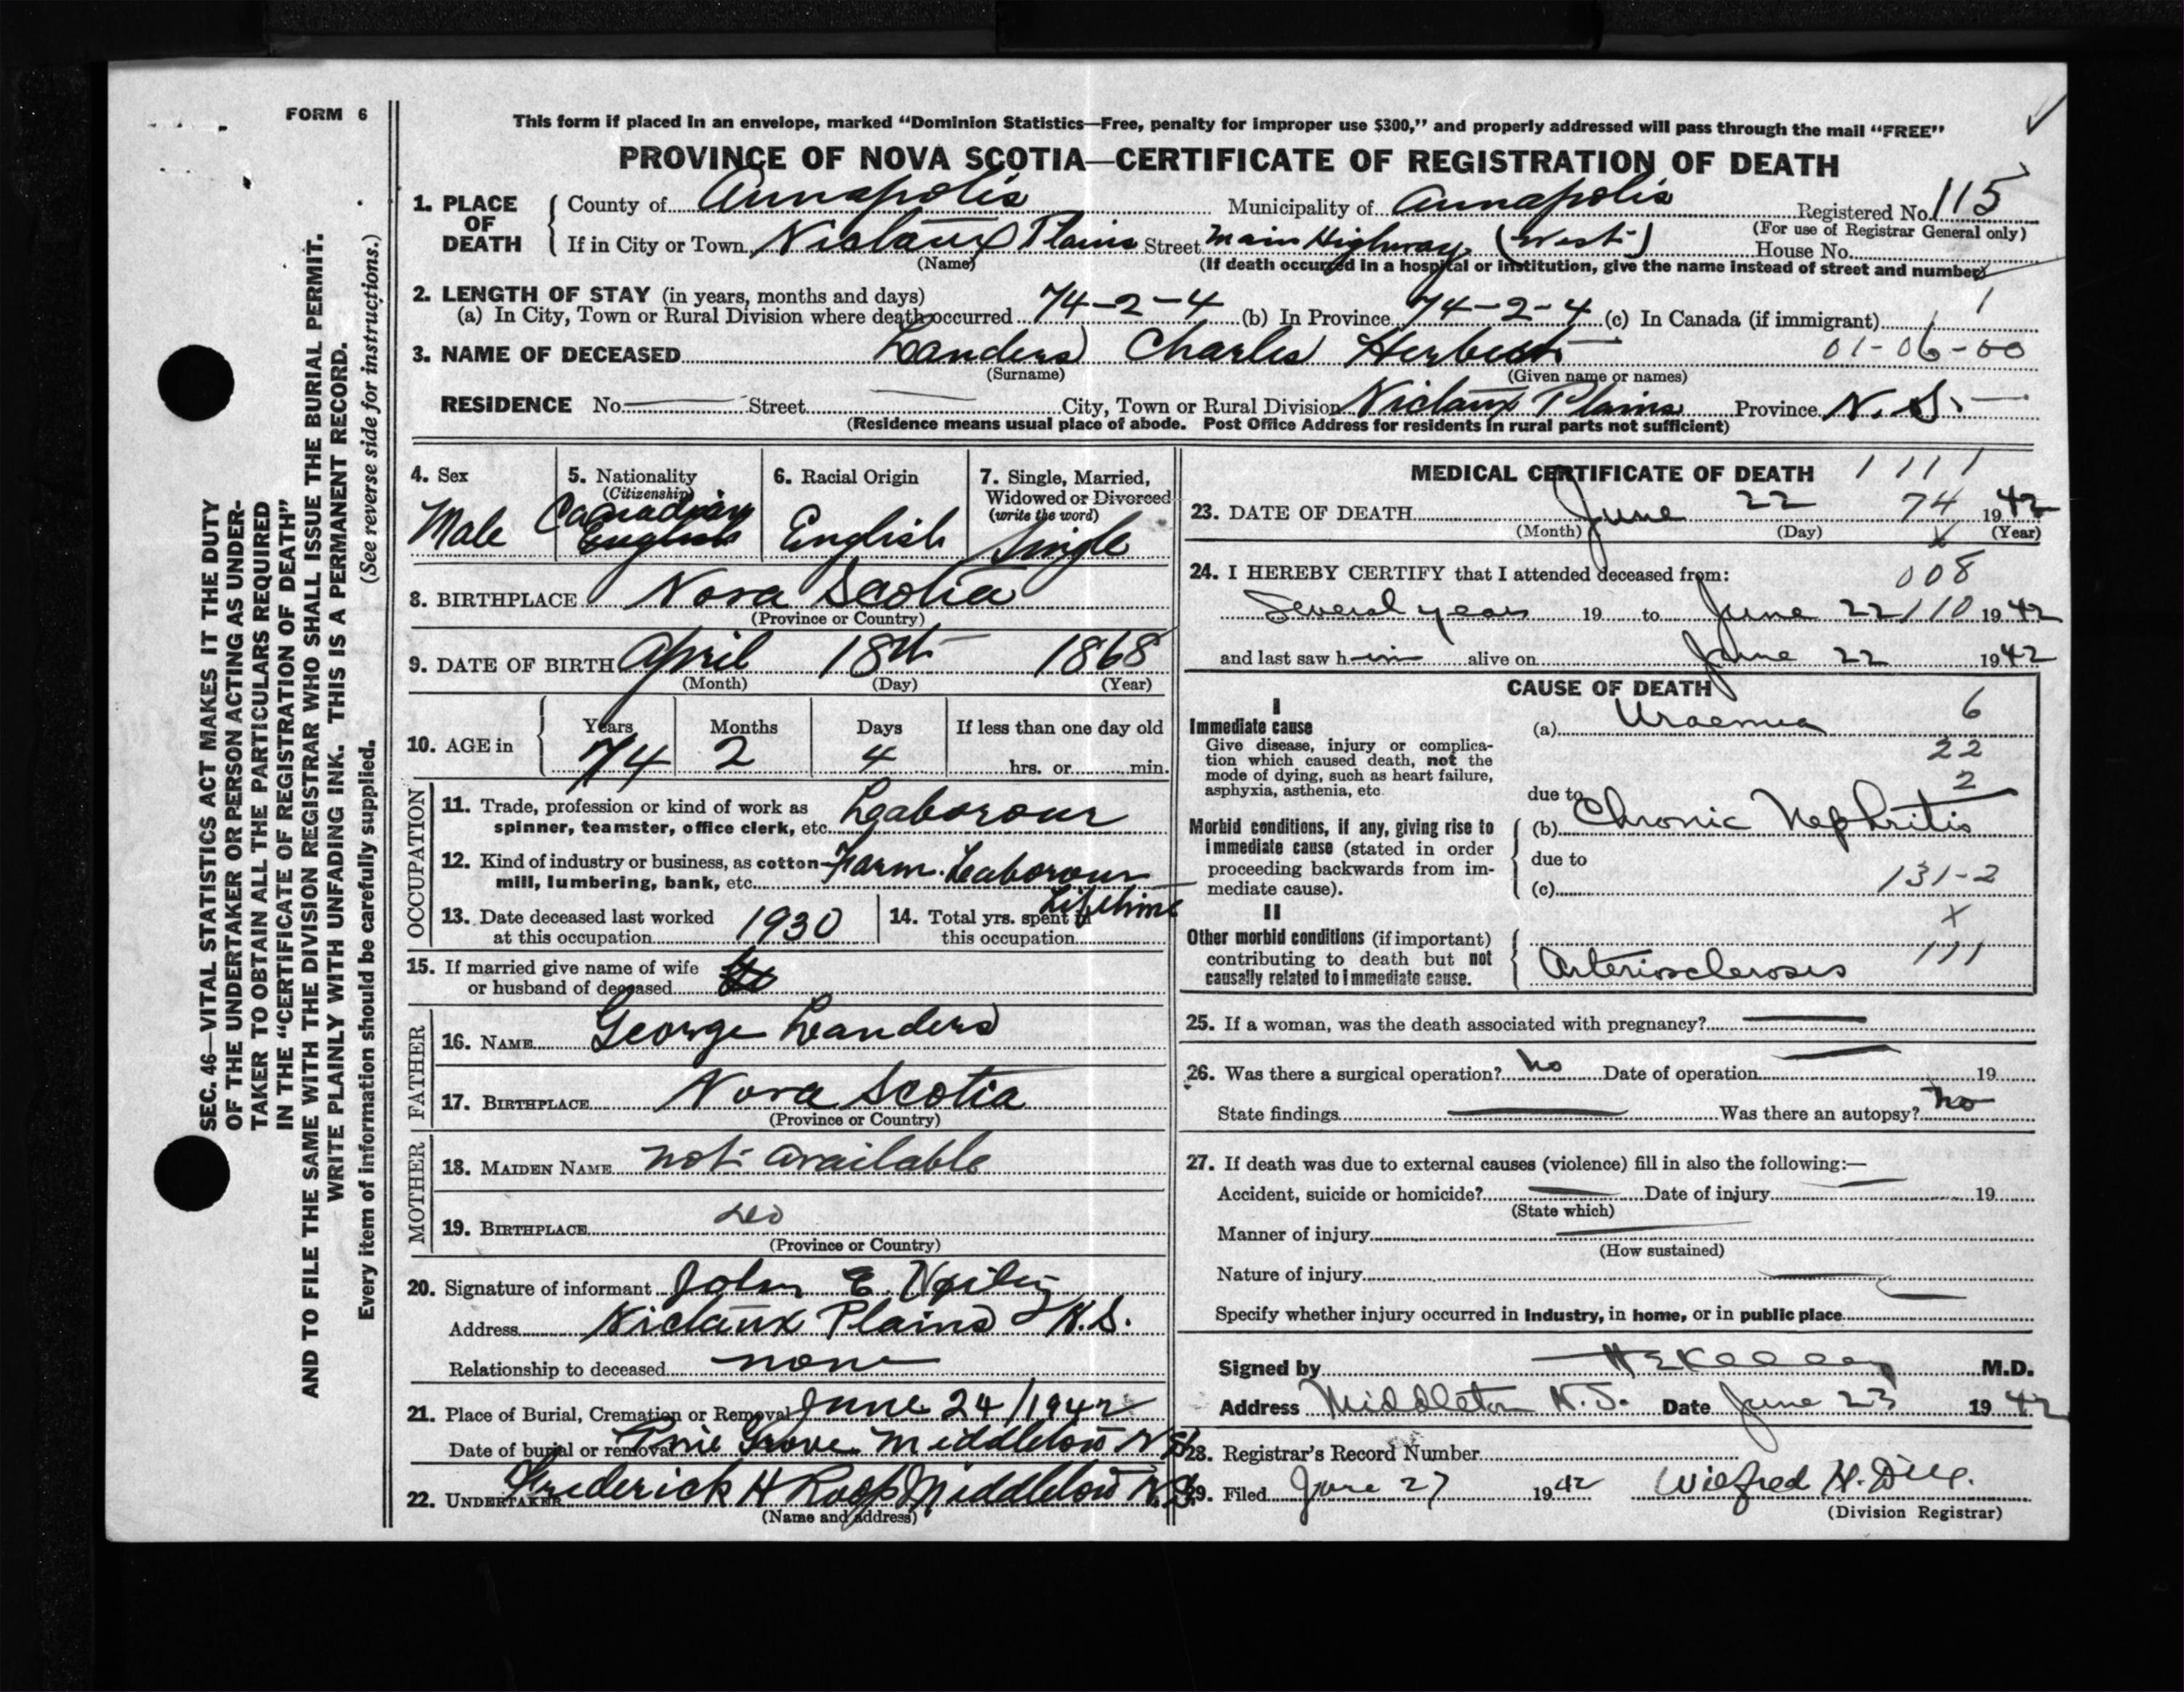 FORM 6
This form if placed in an envelope, marked “Dominion Statistics—Free, penalty for improper use $300,” and properly addressed will pass through the mail “FREE”
PROVINCE OF NOVA SCOTIA—CERTIFICATE OF REGISTRATION OF DEATH
1. PLACE OF DEATH
County of Annapolis Municipality of Annapolis Registered No. 115
(For use of Registrar General only)
If in City or Town Nictaux Plains Street Main Highway (West) House No.
(Name) (If death occurred in a hospital or institution, give the name instead of street and number)
2. LENGTH OF STAY (in years, months and days)
(a) In City, Town or Rural Division where death occurred 74-2-4 (b) In Province 74-2-4 (c) In Canada (if immigrant) 1
3. NAME OF DECEASED Landers Charles Herbert 01-06-00
(Surname) (Given name or names)
RESIDENCE No. — Street — City, Town or Rural Division Nictaux Plains Province N.S.
(Residence means usual place of abode. Post Office Address for residents in rural parts not sufficient)
4. Sex
Male
5. Nationality
(Citizenship)
Canadian
English
6. Racial Origin
English
7. Single, Married,
Widowed or Divorced
(write the word)
Single
8. BIRTHPLACE Nova Scotia
(Province or Country)
9. DATE OF BIRTH April 18th 1868
(Month) (Day) (Year)
10. AGE in
Years Months Days If less than one day old
74 2 4 hrs. or min.
OCCUPATION
11. Trade, profession or kind of work as
spinner, teamster, office clerk, etc. Leaborour
12. Kind of industry or business, as cotton
mill, lumbering, bank, etc. Farm Leaborour
13. Date deceased last worked
at this occupation 1930
14. Total yrs. spent in
this occupation Lifetime
15. If married give name of wife
or husband of deceased
FATHER
16. NAME George Landers
17. BIRTHPLACE Nova Scotia
(Province or Country)
MOTHER
18. MAIDEN NAME not available
19. BIRTHPLACE
(Province or Country)
20. Signature of informant John E.
Address Nictaux Plains N.S.
Relationship to deceased none
21. Place of Burial, Cremation or Removal June 24/1942
Date of burial or removal Pine Grove Middleton N.S.
22. UNDERTAKER Frederick H Roop Middleton N.S.
(Name and address)
MEDICAL CERTIFICATE OF DEATH 1 1 1 1
23. DATE OF DEATH June 22 74 1942
(Month) (Day) (Year)
x
24. I HEREBY CERTIFY that I attended deceased from: 008
Several years 19 to June 22 110 1942
and last saw him alive on June 22 1942
CAUSE OF DEATH
I
Immediate cause
Give disease, injury or complica-
tion which caused death, not the
mode of dying, such as heart failure,
asphyxia, asthenia, etc.
(a) Uraemia 6
22
2
due to
Morbid conditions, if any, giving rise to
immediate cause (stated in order
proceeding backwards from im-
mediate cause).
(b) Chronic Nephritis
due to
(c) 131-2
II
Other morbid conditions (if important)
contributing to death but not
causally related to immediate cause.
x
111
Arteriosclerosis
25. If a woman, was the death associated with pregnancy? —
26. Was there a surgical operation? No Date of operation — 19
State findings — Was there an autopsy? No
27. If death was due to external causes (violence) fill in also the following:—
Accident, suicide or homicide? — Date of injury — 19
(State which)
Manner of injury —
(How sustained)
Nature of injury —
Specify whether injury occurred in industry, in home, or in public place
Signed by M.D.
Address Middleton N.S. Date June 23 1942
28. Registrar's Record Number
29. Filed June 27 1942 Wilfred H.
(Division Registrar)
SEC. 46—VITAL STATISTICS ACT MAKES IT THE DUTY
OF THE UNDERTAKER OR PERSON ACTING AS UNDER-
TAKER TO OBTAIN ALL THE PARTICULARS REQUIRED
IN THE “CERTIFICATE OF REGISTRATION OF DEATH”
AND TO FILE THE SAME WITH THE DIVISION REGISTRAR WHO SHALL ISSUE THE BURIAL PERMIT.
WRITE PLAINLY WITH UNFADING INK. THIS IS A PERMANENT RECORD.
Every item of information should be carefully supplied. (See reverse side for instructions.)